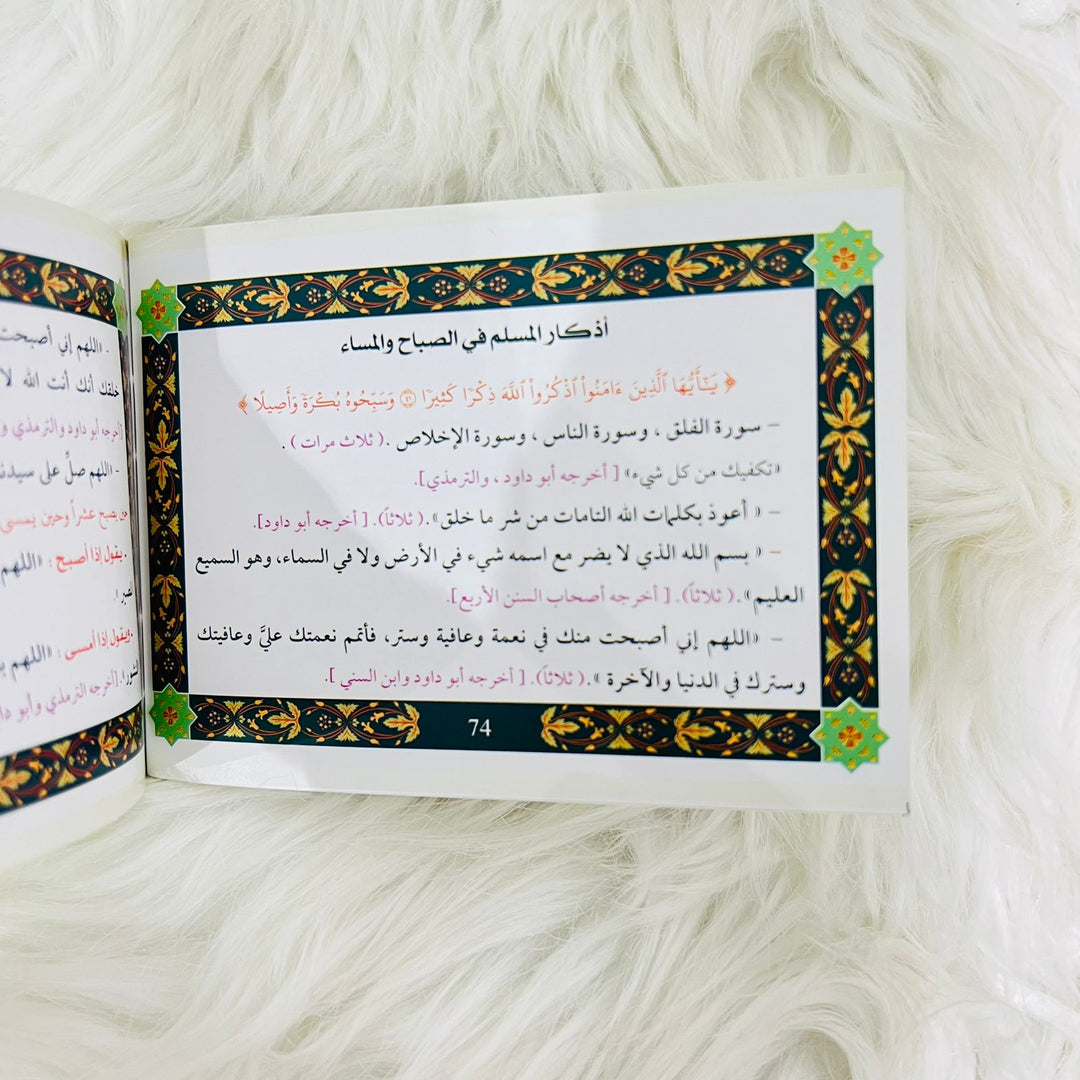 أذكار المسلم في الصباح والمساء
﴿ يَـٰٓأَيُّهَا ٱلَّذِينَ ءَامَنُوا۟ ٱذْكُرُوا۟ ٱللَّهَ ذِكْرًا كَثِيرًا ۝٤١ وَسَبِّحُوهُ بُكْرَةً وَأَصِيلًا ﴾
– سورة الفلق ، وسورة الناس ، وسورة الإخلاص .( ثلاث مرات ) .
«تكفيك من كل شيء» [ أخرجه أبو داود ، والترمذي].
– « أعوذ بكلمات الله التامات من شر ما خلق».( ثلاثاً). [ أخرجه أبو داود].
– « بسم الله الذي لا يضر مع اسمه شيء في الأرض ولا في السماء، وهو السميع
العليم».( ثلاثاً). [ أخرجه أصحاب السنن الأربع].
– «اللهم إني أصبحت منك في نعمة وعافية وستر، فأتمم نعمتك عليَّ وعافيتك
وسترك في الدنيا والآخرة ».( ثلاثاً). [ أخرجه أبو داود وابن السني ].
74
- «اللهم إني أصبحت
خلقك أنك أنت الله لا
أخرجه أبو داود والترمذي و
- «اللهم صلِّ على سيدنا
حين يصبح عشراً وحين يمسى
• يقول إذا أصبح : «اللهم
• ويقول إذا أمسى : «اللهم
[أخرجه الترمذي وأبو